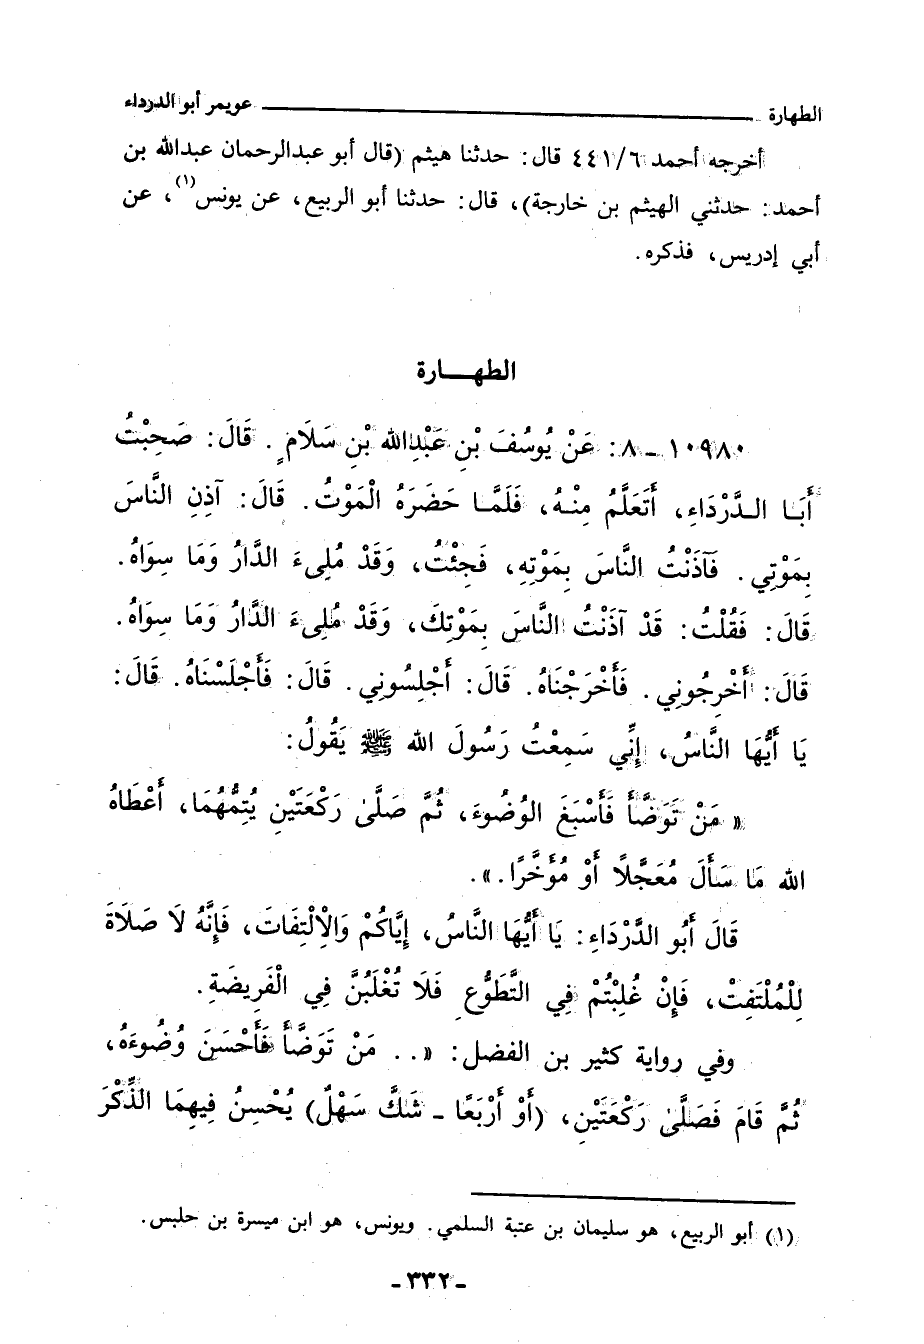 الطهارة ـــــــــــــــــ عويمر أبو الدرداء
أخرجه أحمد ٤٤١/٦ قال: حدثنا هيثم (قال أبو عبدالرحمان عبدالله بن
أحمد: حدثني الهيثم بن خارجة)، قال: حدثنا أبو الربيع، عن يونس(١)، عن
أبي إدريس، فذكره.
الطهـــارة
١٠٩٨٠ ـ ٨: عَنْ يُوسُفَ بْنِ عَبْدِالله بْنِ سَلَامٍ. قَالَ: صَحِبْتُ
أَبَا الدَّرْدَاءِ، أَتَعَلَّمُ مِنْهُ، فَلَمَّا حَضَرَهُ الْمَوْتُ. قَالَ: آذِنِ النَّاسَ
بِمَوْتِي. فَآذَنْتُ النَّاسَ بِمَوْتِهِ، فَجِئْتُ، وَقَدْ مُلِىءَ الدَّارُ وَمَا سِوَاهُ.
قَالَ: فَقُلْتُ: قَدْ آذَنْتُ النَّاسَ بِمَوْتِكَ، وَقَدْ مُلِىءَ الدَّارُ وَمَا سِوَاهُ.
قَالَ: أَخْرِجُونِي. فَأَخْرَجْنَاهُ. قَالَ: أَجْلِسُونِي. قَالَ: فَأَجْلَسْنَاهُ. قَالَ:
يَا أَيُّهَا النَّاسُ، إِنِّي سَمِعْتُ رَسُولَ الله ﷺ يَقُولُ:
« مَنْ تَوَضَّأَ فَأَسْبَغَ الوُضُوءَ، ثُمَّ صَلَّىٰ رَكْعَتَيْنِ يُتِمُّهُمَا، أَعْطَاهُ
الله مَا سَأَلَ مُعَجَّلًا أَوْ مُؤَخَّرًا.».
قَالَ أَبُو الدَّرْدَاءِ: يَا أَيُّهَا النَّاسُ، إِيَّاكُمْ وَالْاِلْتِفَاتَ، فَإِنَّهُ لَا صَلَاةَ
لِلْمُلْتَفِتْ، فَإِنْ غُلِبْتُمْ فِي التَّطَوُّعِ فَلَا تُغْلَبُنَّ فِي الْفَرِيضَةِ.
وفي رواية كثير بن الفضل: «.. مَنْ تَوَضَّأَ فَأَحْسَنَ وُضُوءَهُ،
ثُمَّ قَامَ فَصَلَّىٰ رَكْعَتَيْنِ، (أَوْ أَرْبَعًا ـ شَكَّ سَهْلٌ) يُحْسِنُ فِيهِمَا الذِّكْرَ
(١) أبو الربيع، هو سليمان بن عتبة السلمي. ويونس، هو ابن ميسرة بن حلبس.
ـ ٣٣٢ ـ